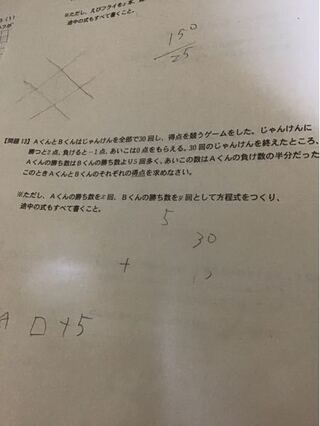 ※ただし、えびフライをx本、
途中の式もすべて書くこと。
15°
25
【問題 13】AくんとBくんはじゃんけんを全部で30回し、得点を競うゲームをした。じゃんけんに
勝つと2点、負けると−1点、あいこは0点をもらえる。30回のじゃんけんを終えたところ、
Aくんの勝ち数はBくんの勝ち数より5回多く、あいこの数はAくんの負け数の半分だった
このときAくんとBくんのそれぞれの得点を求めなさい。
※ただし、Aくんの勝ち数をx回、Bくんの勝ち数をy回として方程式をつくり、
途中の式もすべて書くこと。
5
30
+
A □+5